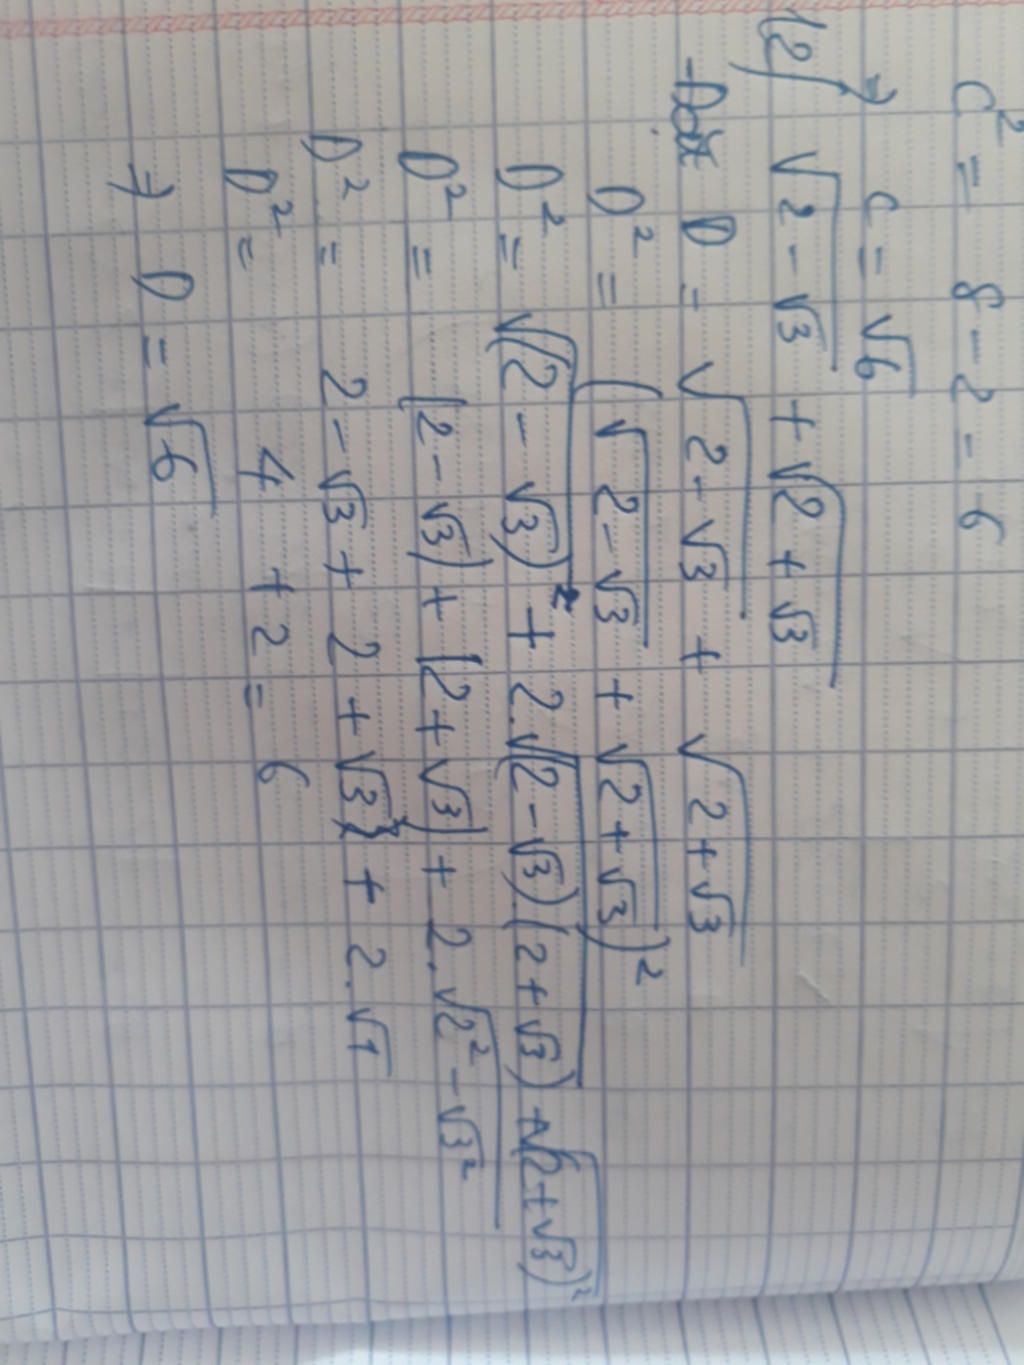 C² = 8 - 2 = 6
=> C = √6
12/ √(2 - √3) + √(2 + √3)
- Đặt D = √(2 - √3) + √(2 + √3)
D² = (√(2 - √3) + √(2 + √3))²
D² = √(2 - √3)² + 2.√((2 - √3).(2 + √3)) + √(2 + √3)²
D² = (2 - √3) + (2 + √3) + 2.√(2² - √3²)
D² = 2 - √3 + 2 + √3 + 2.√1
D² = 4 + 2 = 6
=> D = √6